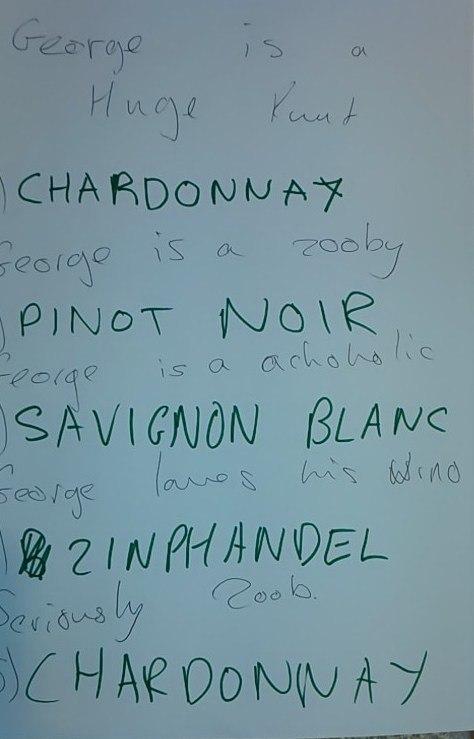 George is a
Huge Kunt
) CHARDONNAY
George is a zooby
) PINOT NOIR
George is a achoholic
) SAVIGNON BLANC
George loves his wino
) ZINPHANDEL
Seriously Zoob.
5) CHARDONNAY